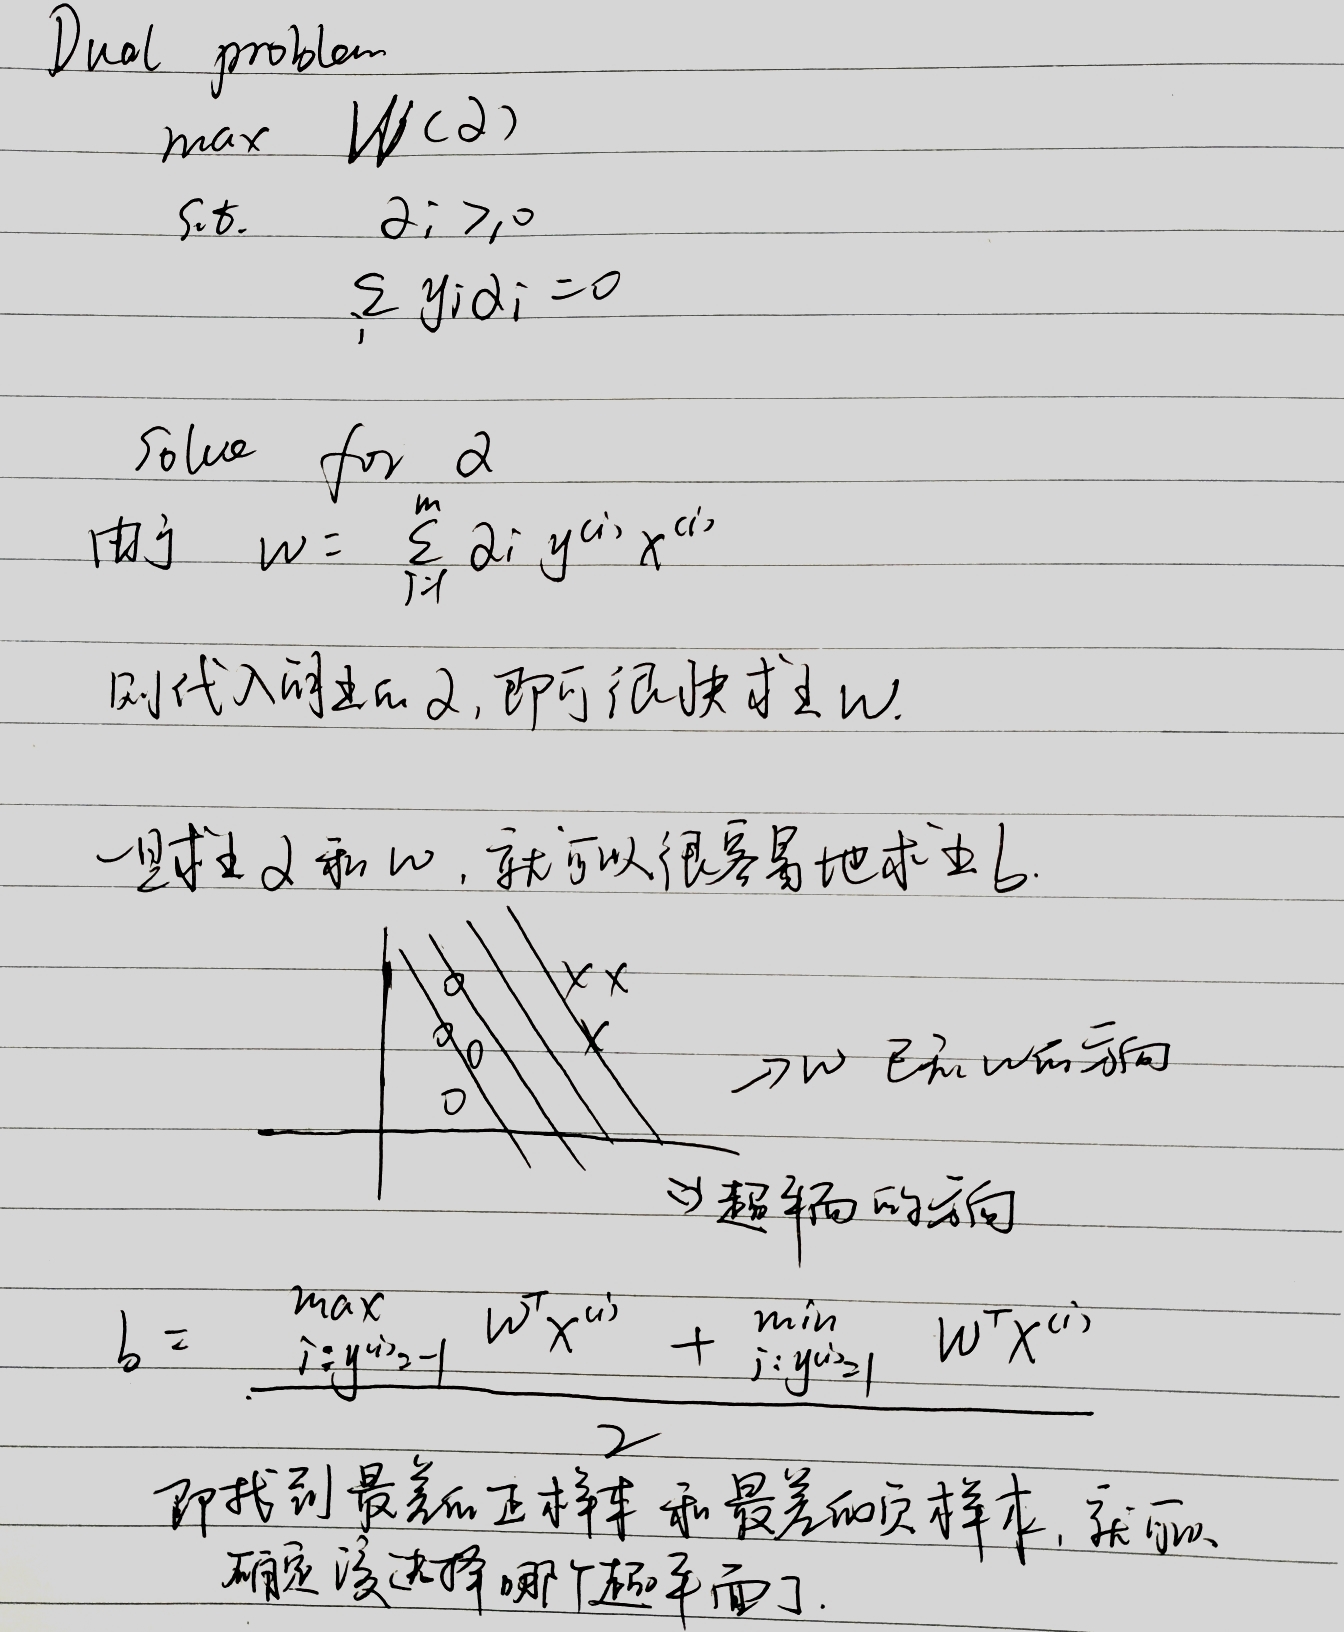 Dual problem
max W(α)
s.t. αi ≥ 0
Σ_i yiαi = 0
Solve for α
由于 w = Σ_{i=1}^{m} αi y^(i) x^(i)
则代入解出的α,即可很快求出w.
一旦求出α和w,就可以很容易地求出b.
→w 已知w的方向
⇒超平面的方向
b = (max_{i:y^(i)=-1} W^T X^(i) + min_{i:y^(i)=1} W^T X^(i)) / 2
即找到最差的正样本和最差的负样本,就可以
确定该选择哪个超平面了.